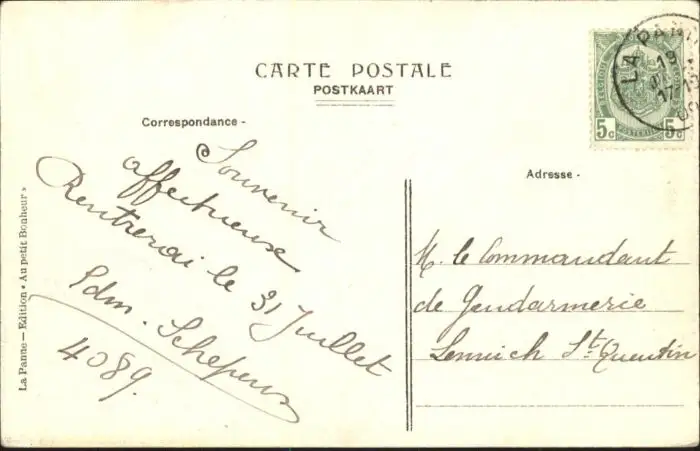 CARTE POSTALE
POSTKAART
Correspondance -
Souvenir
affectueux
Rentrerai le 31 Juillet
Edm. Schepens
4089.
La Panne — Edition « Au petit Bonheur »
BELGIQUE
BELGIE
5c
5c
POSTERIJEN
LA PANNE
19
17-18
Adresse -
M. le Commandant
de Gendarmerie
Lennick St. Quentin